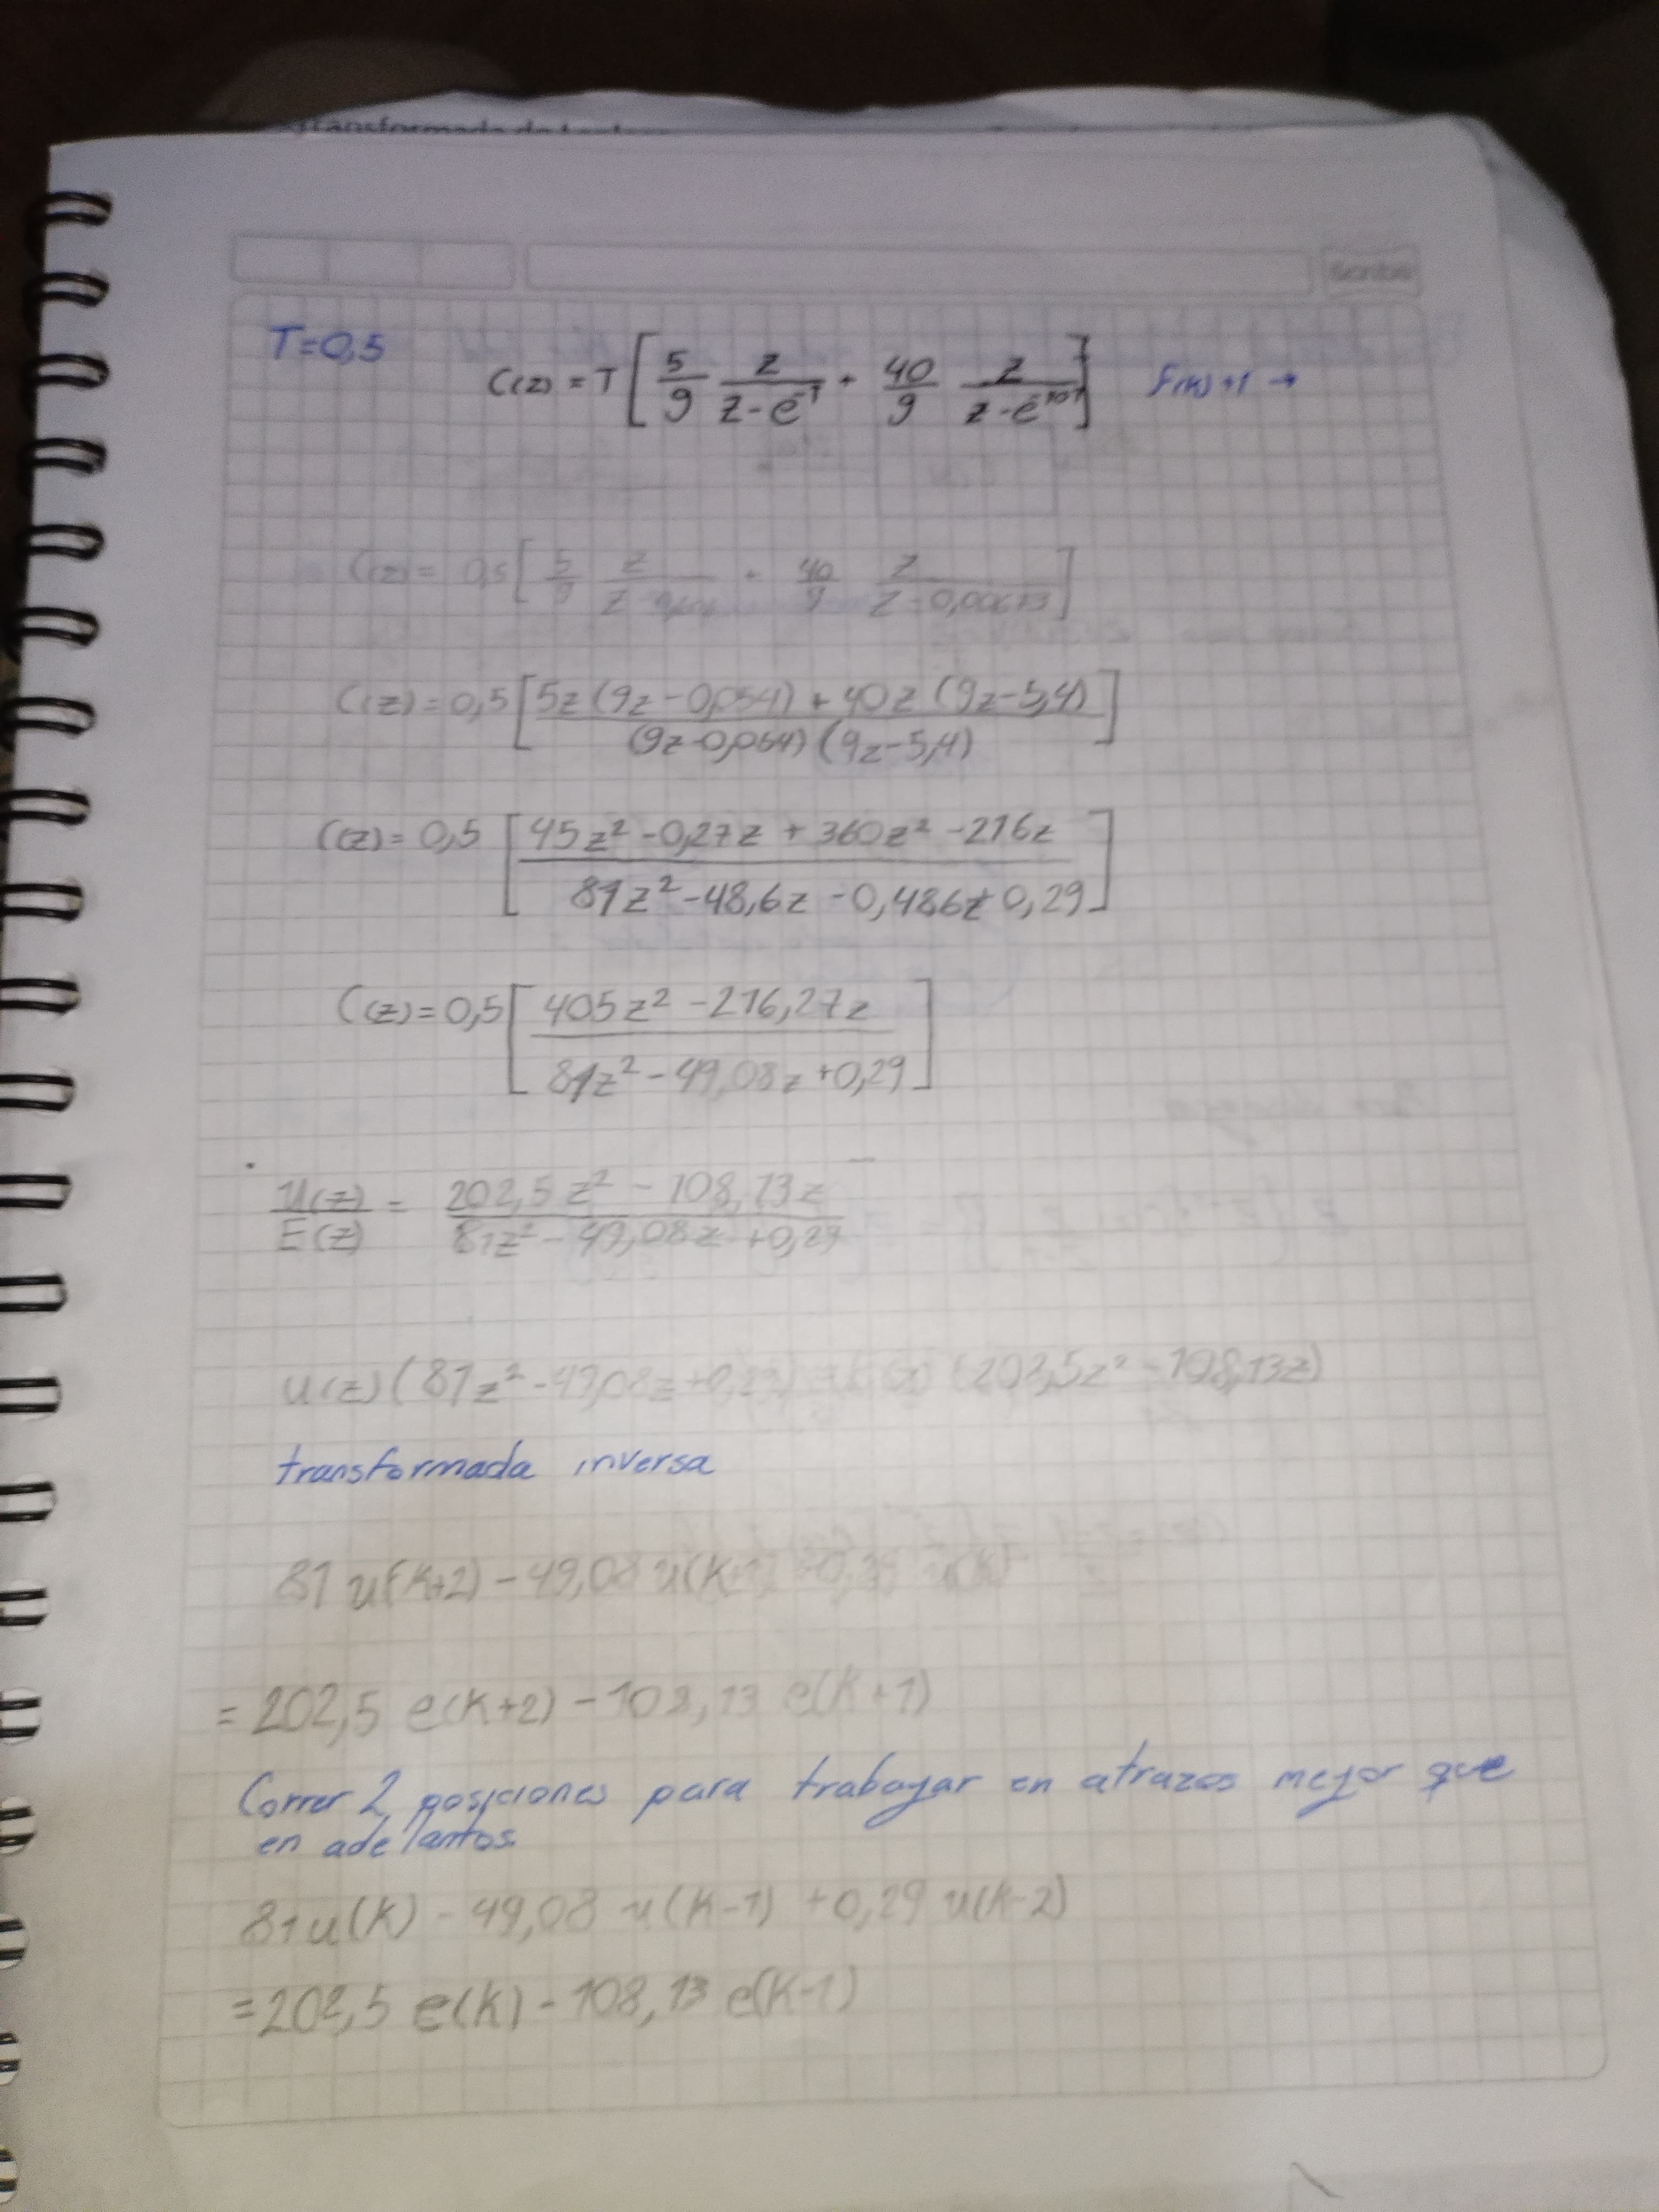 Transformada de
T=0,5
C(z) = T [ 5/9 z/(z-e^-T) + 40/9 z/(z-e^-10T) ] F(k)+1 →
C(z) = 0,5 [ 5/9 z/z + 40/9 z/(z-0,00673) ]
C(z) = 0,5 [ (5z(9z-0,054) + 40z(9z-5,4)) / ((9z-0,054)(9z-5,4)) ]
C(z) = 0,5 [ (45z² -0,27z + 360z² -216z) / (81z² -48,6z -0,486z + 0,29) ]
C(z) = 0,5 [ (405z² -216,27z) / (81z² -49,08z +0,29) ]
U(z)/E(z) = (202,5z² - 108,13z) / (81z² - 49,08z +0,29)
U(z)(81z² -49,08z +0,29) = E(z) (202,5z² -108,13z)
transformada inversa
81 u(k+2) - 49,08 u(k+1) +0,29 u(k)
= 202,5 e(k+2) - 108,13 e(k+1)
Correr 2 posiciones para trabajar en atrazos mejor que
en adelantos
81u(k) - 49,08 u(k-1) +0,29 u(k-2)
= 202,5 e(k) - 108,13 e(k-1)